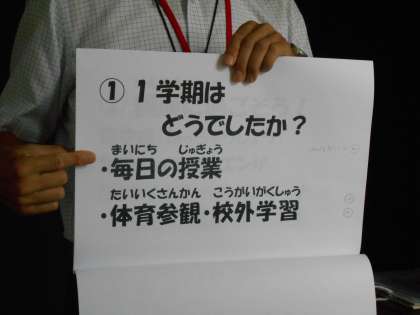 ① 1学期は
どうでしたか？
まいにち じゅぎょう
・毎日の授業
たいいくさんかん こうがいがくしゅう
・体育参観・校外学習